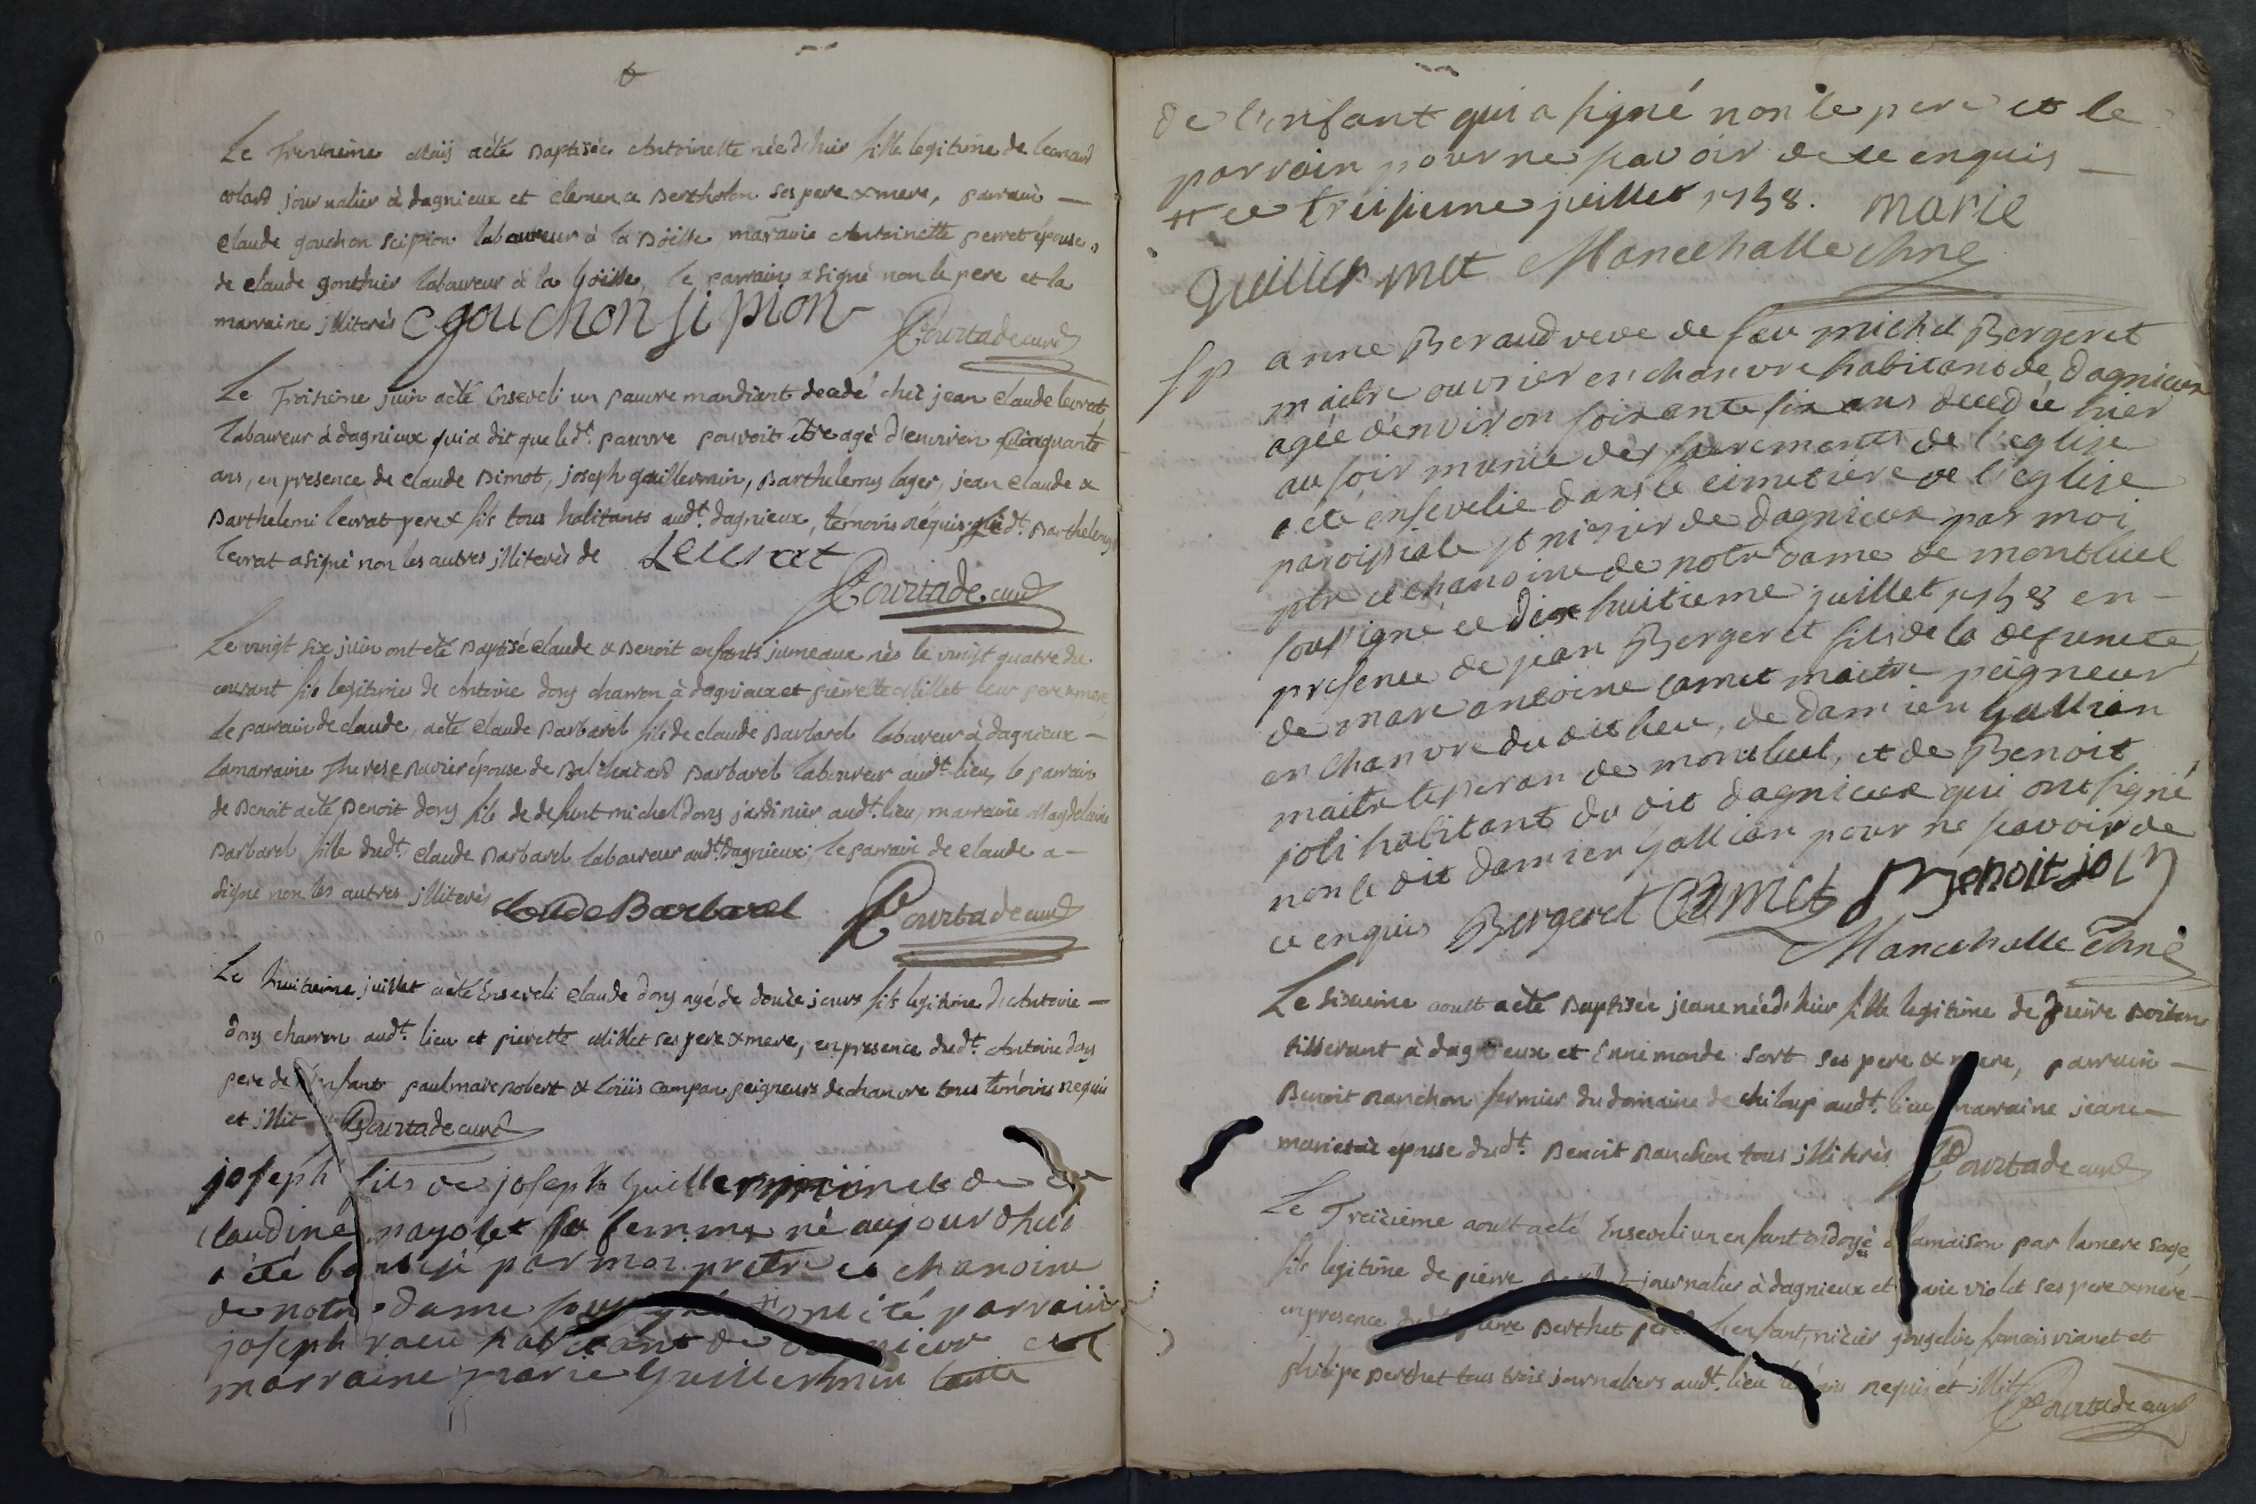 Le Trentieme May a été Baptisée Antoinette née d'hier fille legitime de Leonard
colard journalier à dagnieux et clemence Bertholon ses pere & mere, parrain
claude gouchon scipion laboureur à la Boësse, marraine Antoinette perret épouse
de claude gonthier laboureur à la Boësse, le parrain a signé non le pere et la
marraine illiterés Cgouchon sipion Courtade curé
Le Troisieme juin a été Enseveli un pauvre mandiant decedé chez jean claude levrat
laboureur à dagnieux qui a dit que led.t pauvre pouvoit être agé d'environ cinquante
ans, en presence de claude Dimot, joseph guillermin, Barthelemy lager, jean claude &
Barthelemi levrat pere & fils tous habitants aud.t dagnieux, témoins réquis led.t Barthelemy
levrat a signé non les autres illiterés de Leurat
Courtade curé
Le vingt six juin ont été Baptisé claude & Benoit enfants jumeaux nés le vingt quatre du
courant fils legitimes de Antoine dory charron à dagnieux et pierrette Millet leur pere & mere
le parrain de claude, a été claude Barbarel fils de claude Barbarel laboureur à dagnieux
la marraine Therese épouse de Balthazard Barbarel laboureur aud.t lieu, le parrain
de Benoit a été Benoit dory fils de defunt michel dory jardinier aud.t lieu, marraine Magdelaine
Barbarel fille dud.t claude Barbarel laboureur aud.t dagnieux; le parrain de claude a
signé non les autres illiterés Claude Barbarel Courtade curé
Le huitieme juillet a été Enseveli claude dory agé de douze jours fils legitime de Antoine
dory charron aud.t lieu et pierette Millet ses pere & mere, en presence dud.t Antoine dory
pere de l'enfant paul marc robert & Loüis campan peigneurs de chanvre tous témoins requis
et illit Courtade curé
joseph fils de joseph Guillermin et de
claudine nayolet sa femme né aujourdhui
a été baptisé par moi pretre et chanoine
de notre dame soussigné # on a été parrain
joseph habitant de dagnieux et
marraine marie Guillermin tante
de l'enfant qui a signé non le pere et le
parrain pour ne savoir de ce enquis
# ce treisieme juillet 1758. marie
guillermet Marcehalle chne
sp anne Beraud veve de feu michel Bergeret
maitre ouvrier en chanvre habitant de dagnieux
agée d'environ soixante six ans decedée hier
au soir munie des sacrements de l'eglise
a été ensevelie dans le cimetiere de l'eglise
paroissiale st nizier de dagnieux par moi
ptr et chanoine de notre dame de montluel
soussigné ce dix huitieme juillet 1758 en
presence de jean Bergeret fils de la defuncte,
de marc antoine carnet maitre peigneur
en chanvre du dit lieu, de damien Gallian
maitre de montluel, et de Benoit
joli habitant du dit dagnieux qui ont signé
non le dit damien Gallian pour ne savoir de
ce enquis Bergeret Carnet Benoit joly
Marcehalle chne
Le sixieme aoust a été Baptisée jeane née d'hier fille legitime de pierre
tisserant à dagnieux et Ennimonde sort ses pere & mere, parrain
Benoit Ranchon fermier du domaine de chiloup aud.t lieu marraine jeane
marie épouse dud.t Benoit Ranchon tous illiterés Courtade curé
Le Treizieme aoust a été Enseveli un enfant ondoyé à la maison par la mere sage,
fils legitime de pierre Berthet journalier à dagnieux et marie violet ses pere & mere
en presence dud.t pierre Berthet pere de l'enfant, nizier françois vianet et
philipe Berthet tous trois journaliers aud.t lieu témoins requis et illit
Courtade curé